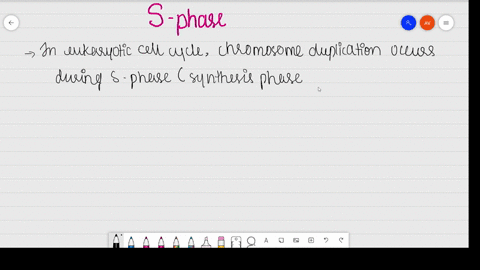 S-phase
→ In eukaryotic cell cycle, chromosome duplication occurs
during S-phase (synthesis phase